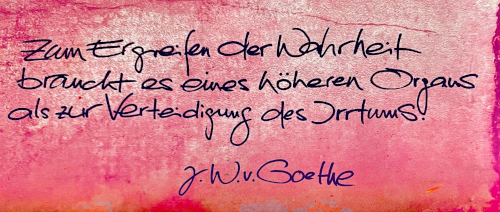 Zum Ergreifen der Wahrheit
braucht es eines höheren Organs
als zur Verteidigung des Irrtums.
J. W. v. Goethe